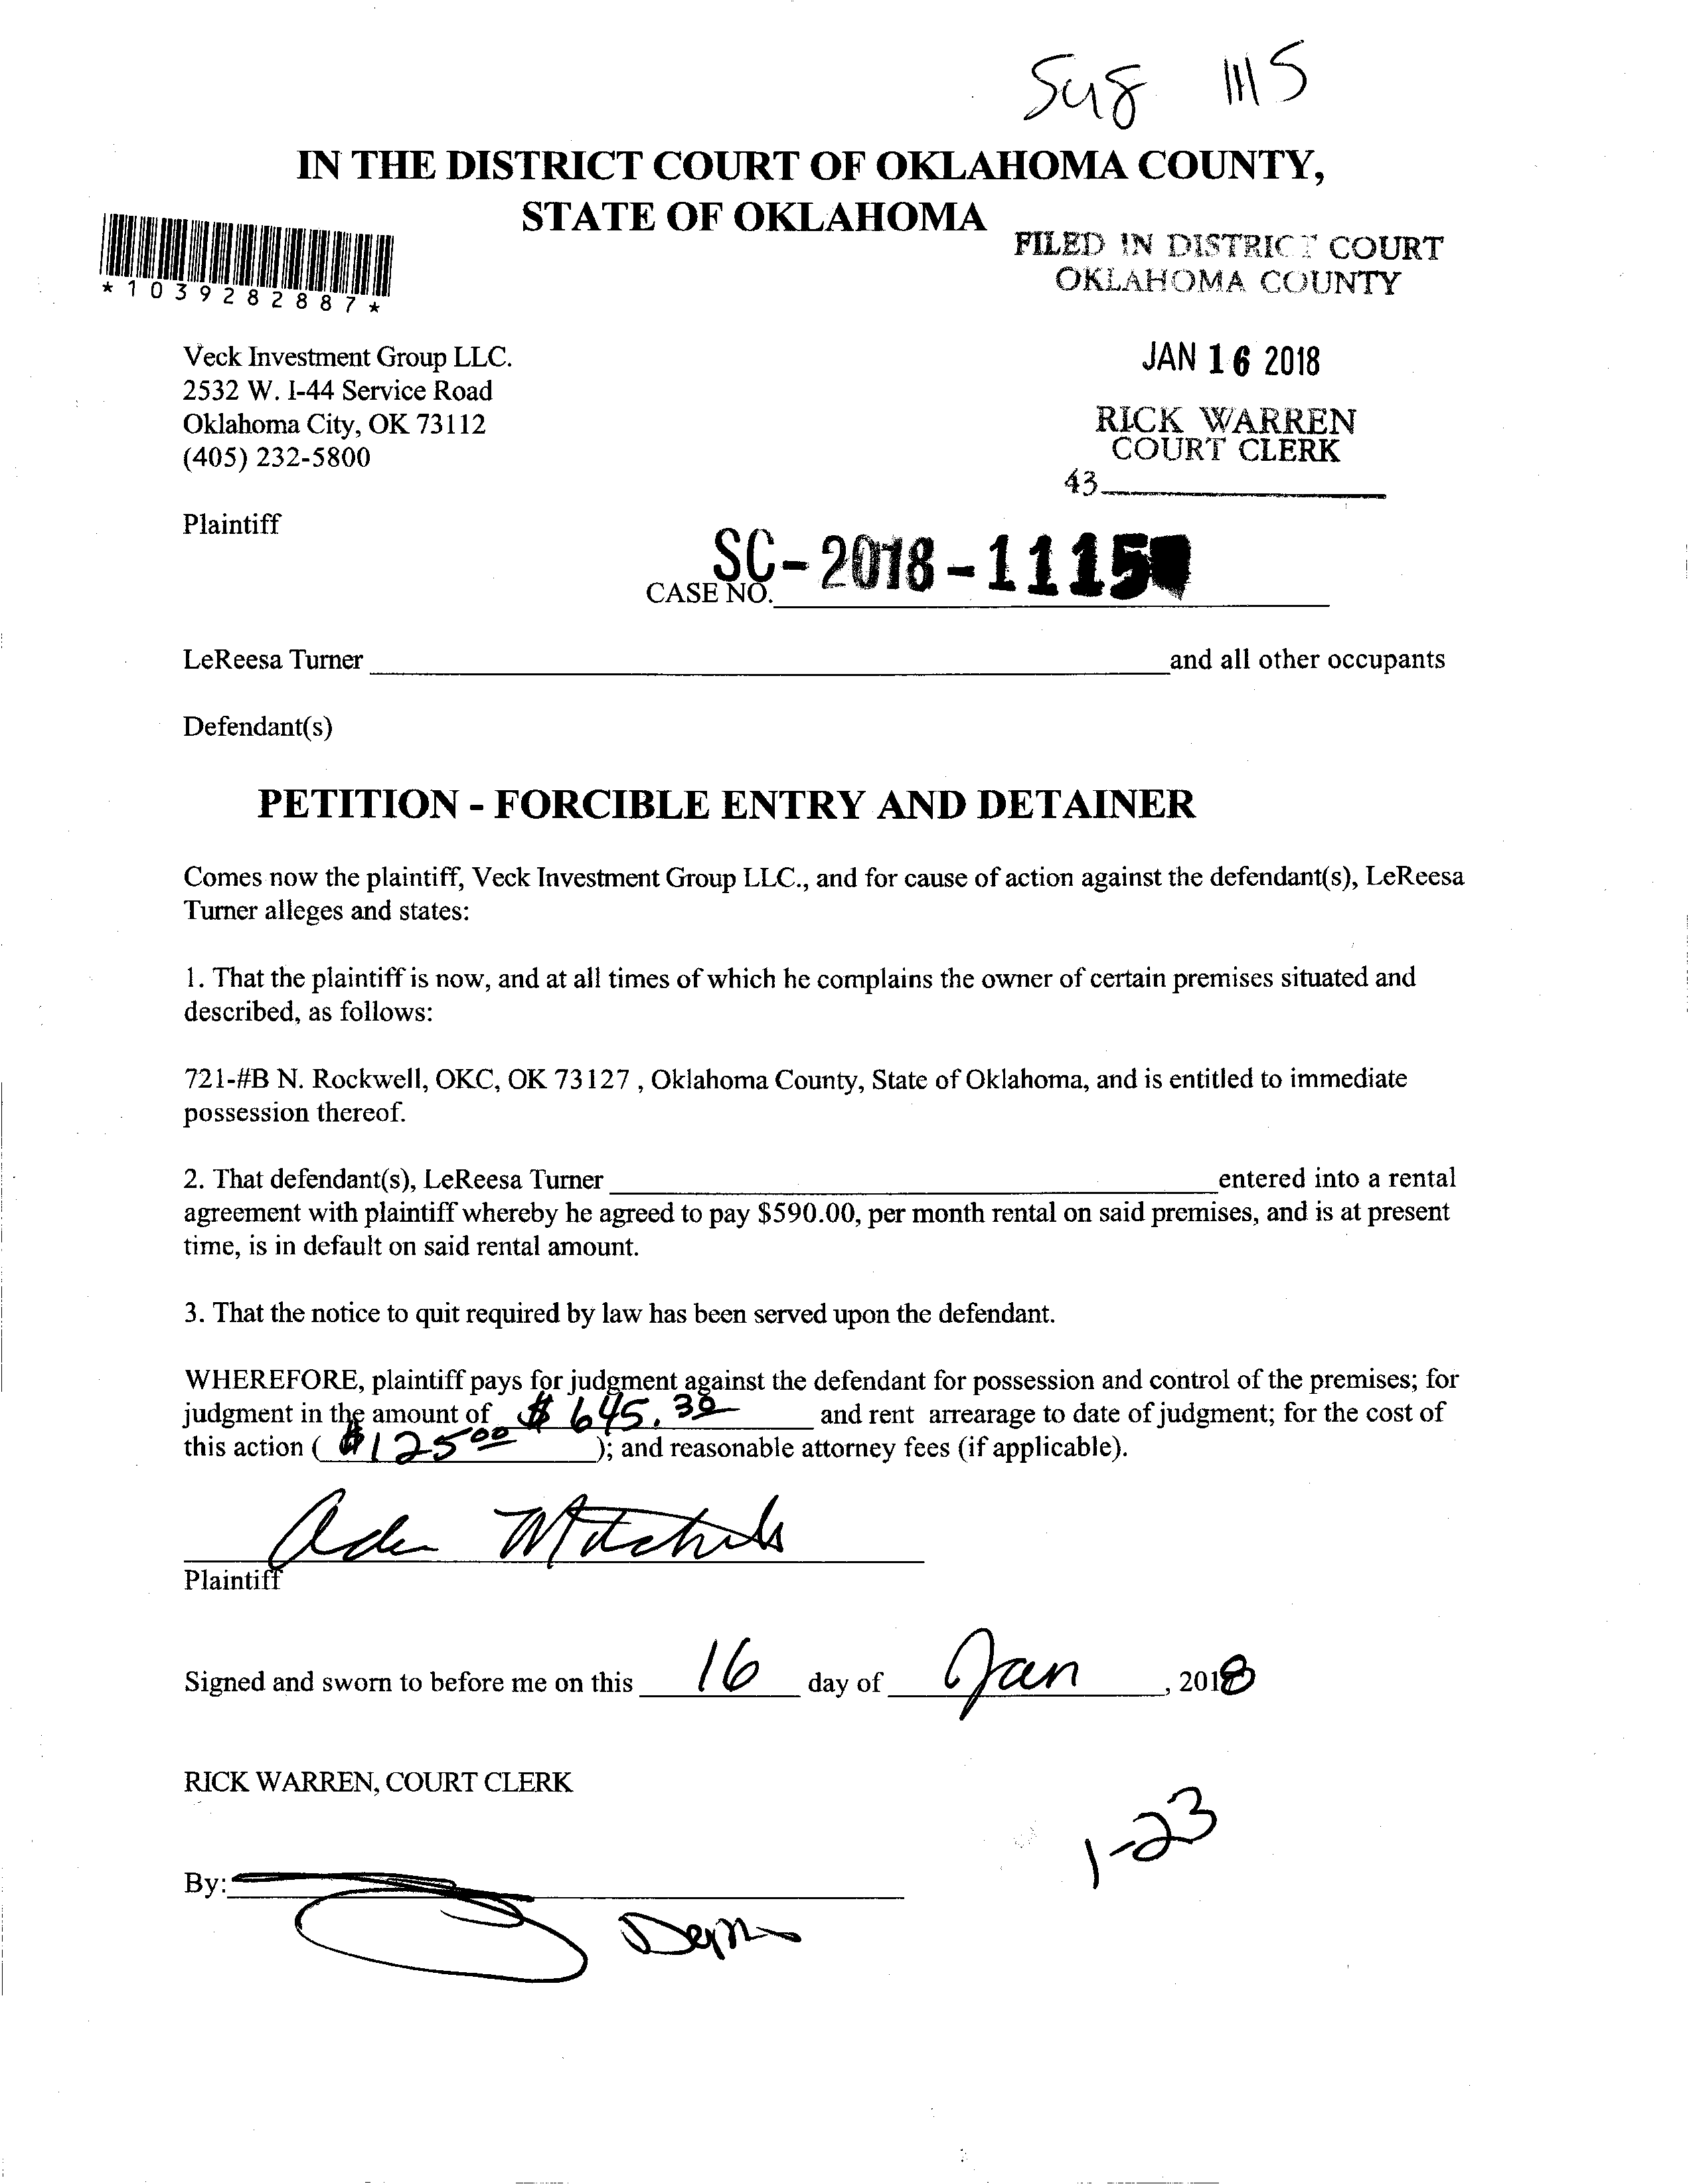 1115
IN THE DISTRICT COURT OF OKLAHOMA COUNTY,
STATE OF OKLAHOMA
FILED IN DISTRICT COURT
OKLAHOMA COUNTY
*1039282887*
Veck Investment Group LLC.
2532 W. I-44 Service Road
Oklahoma City, OK 73112
(405) 232-5800
JAN 16 2018
RICK WARREN
COURT CLERK
43
Plaintiff
SC-2018-1115
CASE NO.
LeReesa Turner and all other occupants
Defendant(s)
PETITION - FORCIBLE ENTRY AND DETAINER
Comes now the plaintiff, Veck Investment Group LLC., and for cause of action against the defendant(s), LeReesa
Turner alleges and states:
1. That the plaintiff is now, and at all times of which he complains the owner of certain premises situated and
described, as follows:
721-#B N. Rockwell, OKC, OK 73127 , Oklahoma County, State of Oklahoma, and is entitled to immediate
possession thereof.
2. That defendant(s), LeReesa Turner entered into a rental
agreement with plaintiff whereby he agreed to pay $590.00, per month rental on said premises, and is at present
time, is in default on said rental amount.
3. That the notice to quit required by law has been served upon the defendant.
WHEREFORE, plaintiff pays for judgment against the defendant for possession and control of the premises; for
judgment in the amount of $ 645.30 and rent arrearage to date of judgment; for the cost of
this action ( $125 00 ); and reasonable attorney fees (if applicable).
Plaintiff
Signed and sworn to before me on this 16 day of Jan , 2018
RICK WARREN, COURT CLERK
1-23
By: